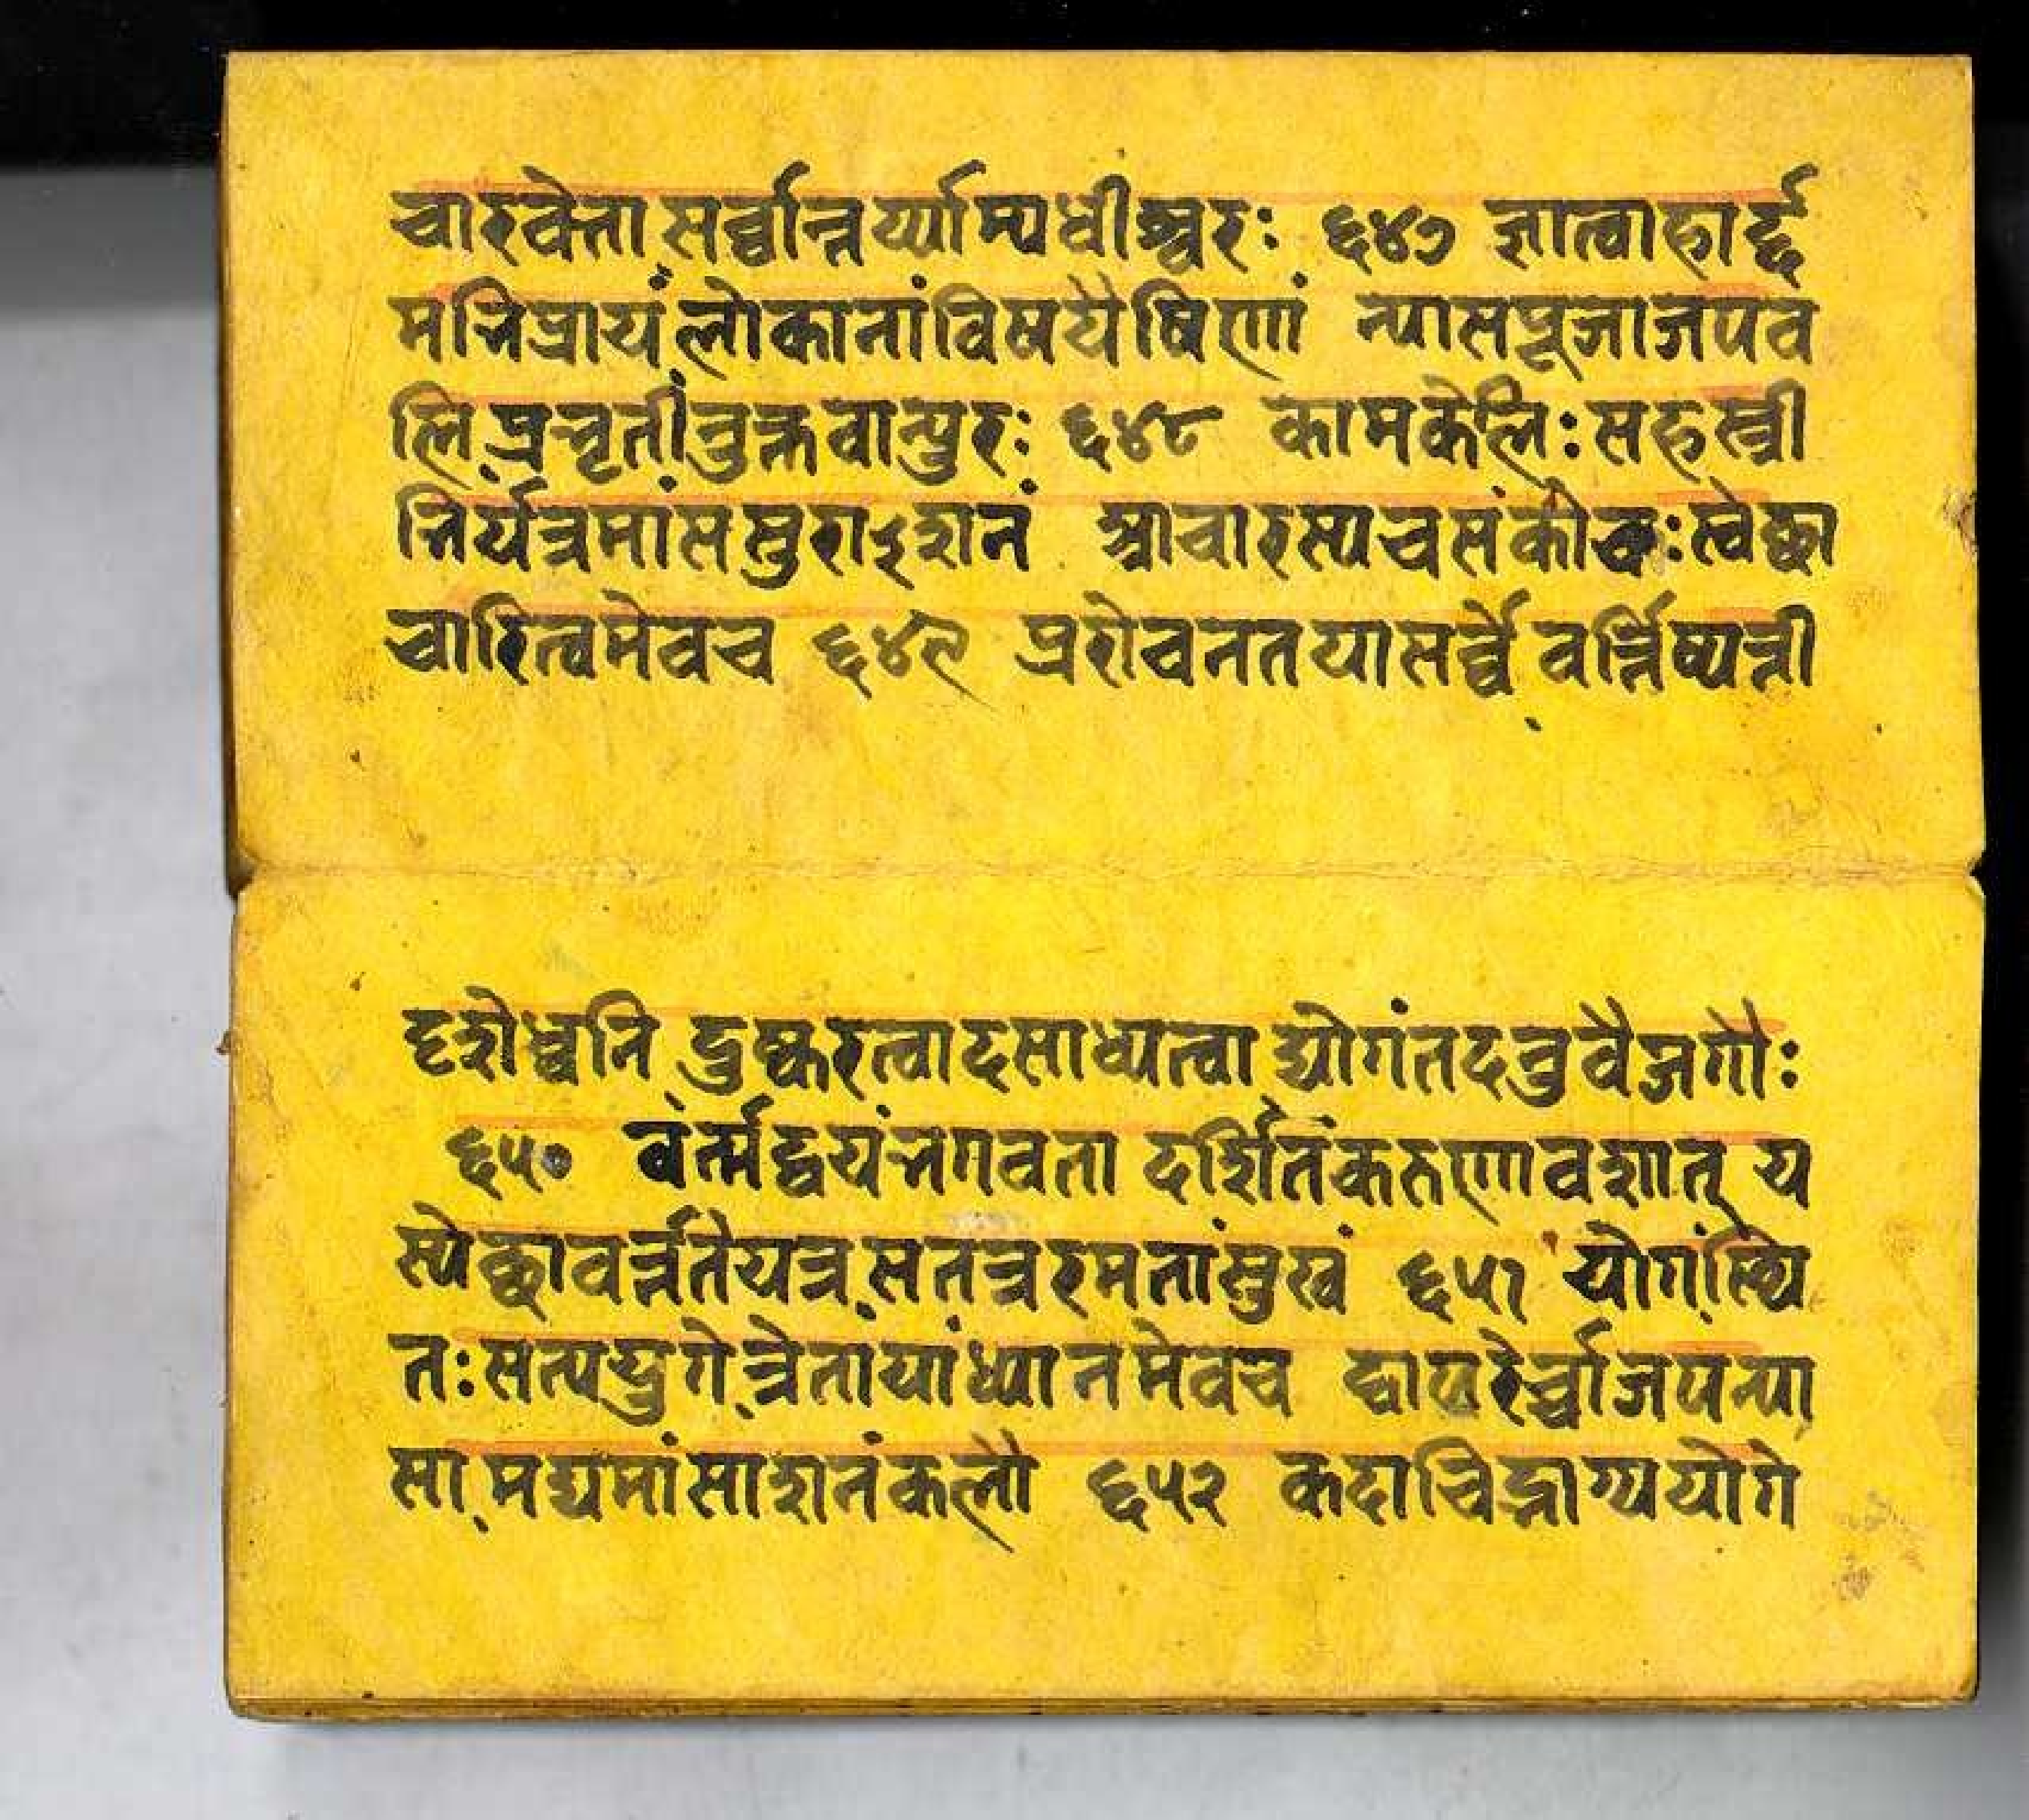 चारवेत्ता सर्व्वान्नर्य्याम्यधीश्वरः ६४७ ज्ञात्वाहार्द्द
मभिप्रायं लोकानां विषयैषिणां न्यासपूजाजपव
लिप्रभृतीनुक्तवान्पुरः ६४८ कामकेलिः सहस्त्री
भिर्यत्रमांससुराऽशनं आचारस्यचसंकोचः स्वेच्छा
चारित्वमेवच ६४९ प्ररोचनतयासर्व्वे वर्त्तिष्यन्ती
दृशेध्वनि दुष्करत्वादसाध्यत्वा द्योगंतदनुवैजगौः
६५० वर्त्मद्वयंभगवता दर्शितंकरुणावशात् य
स्येच्छावर्त्ततेयत्र सतत्ररमतांसुखं ६५१ योगस्थि
तः सत्ययुगे त्रेतायांध्यानमेवच द्वापरेर्च्चाजपन्या
सा मद्यमांसाशनंकलौ ६५२ कदाचिद्भाग्ययोगे